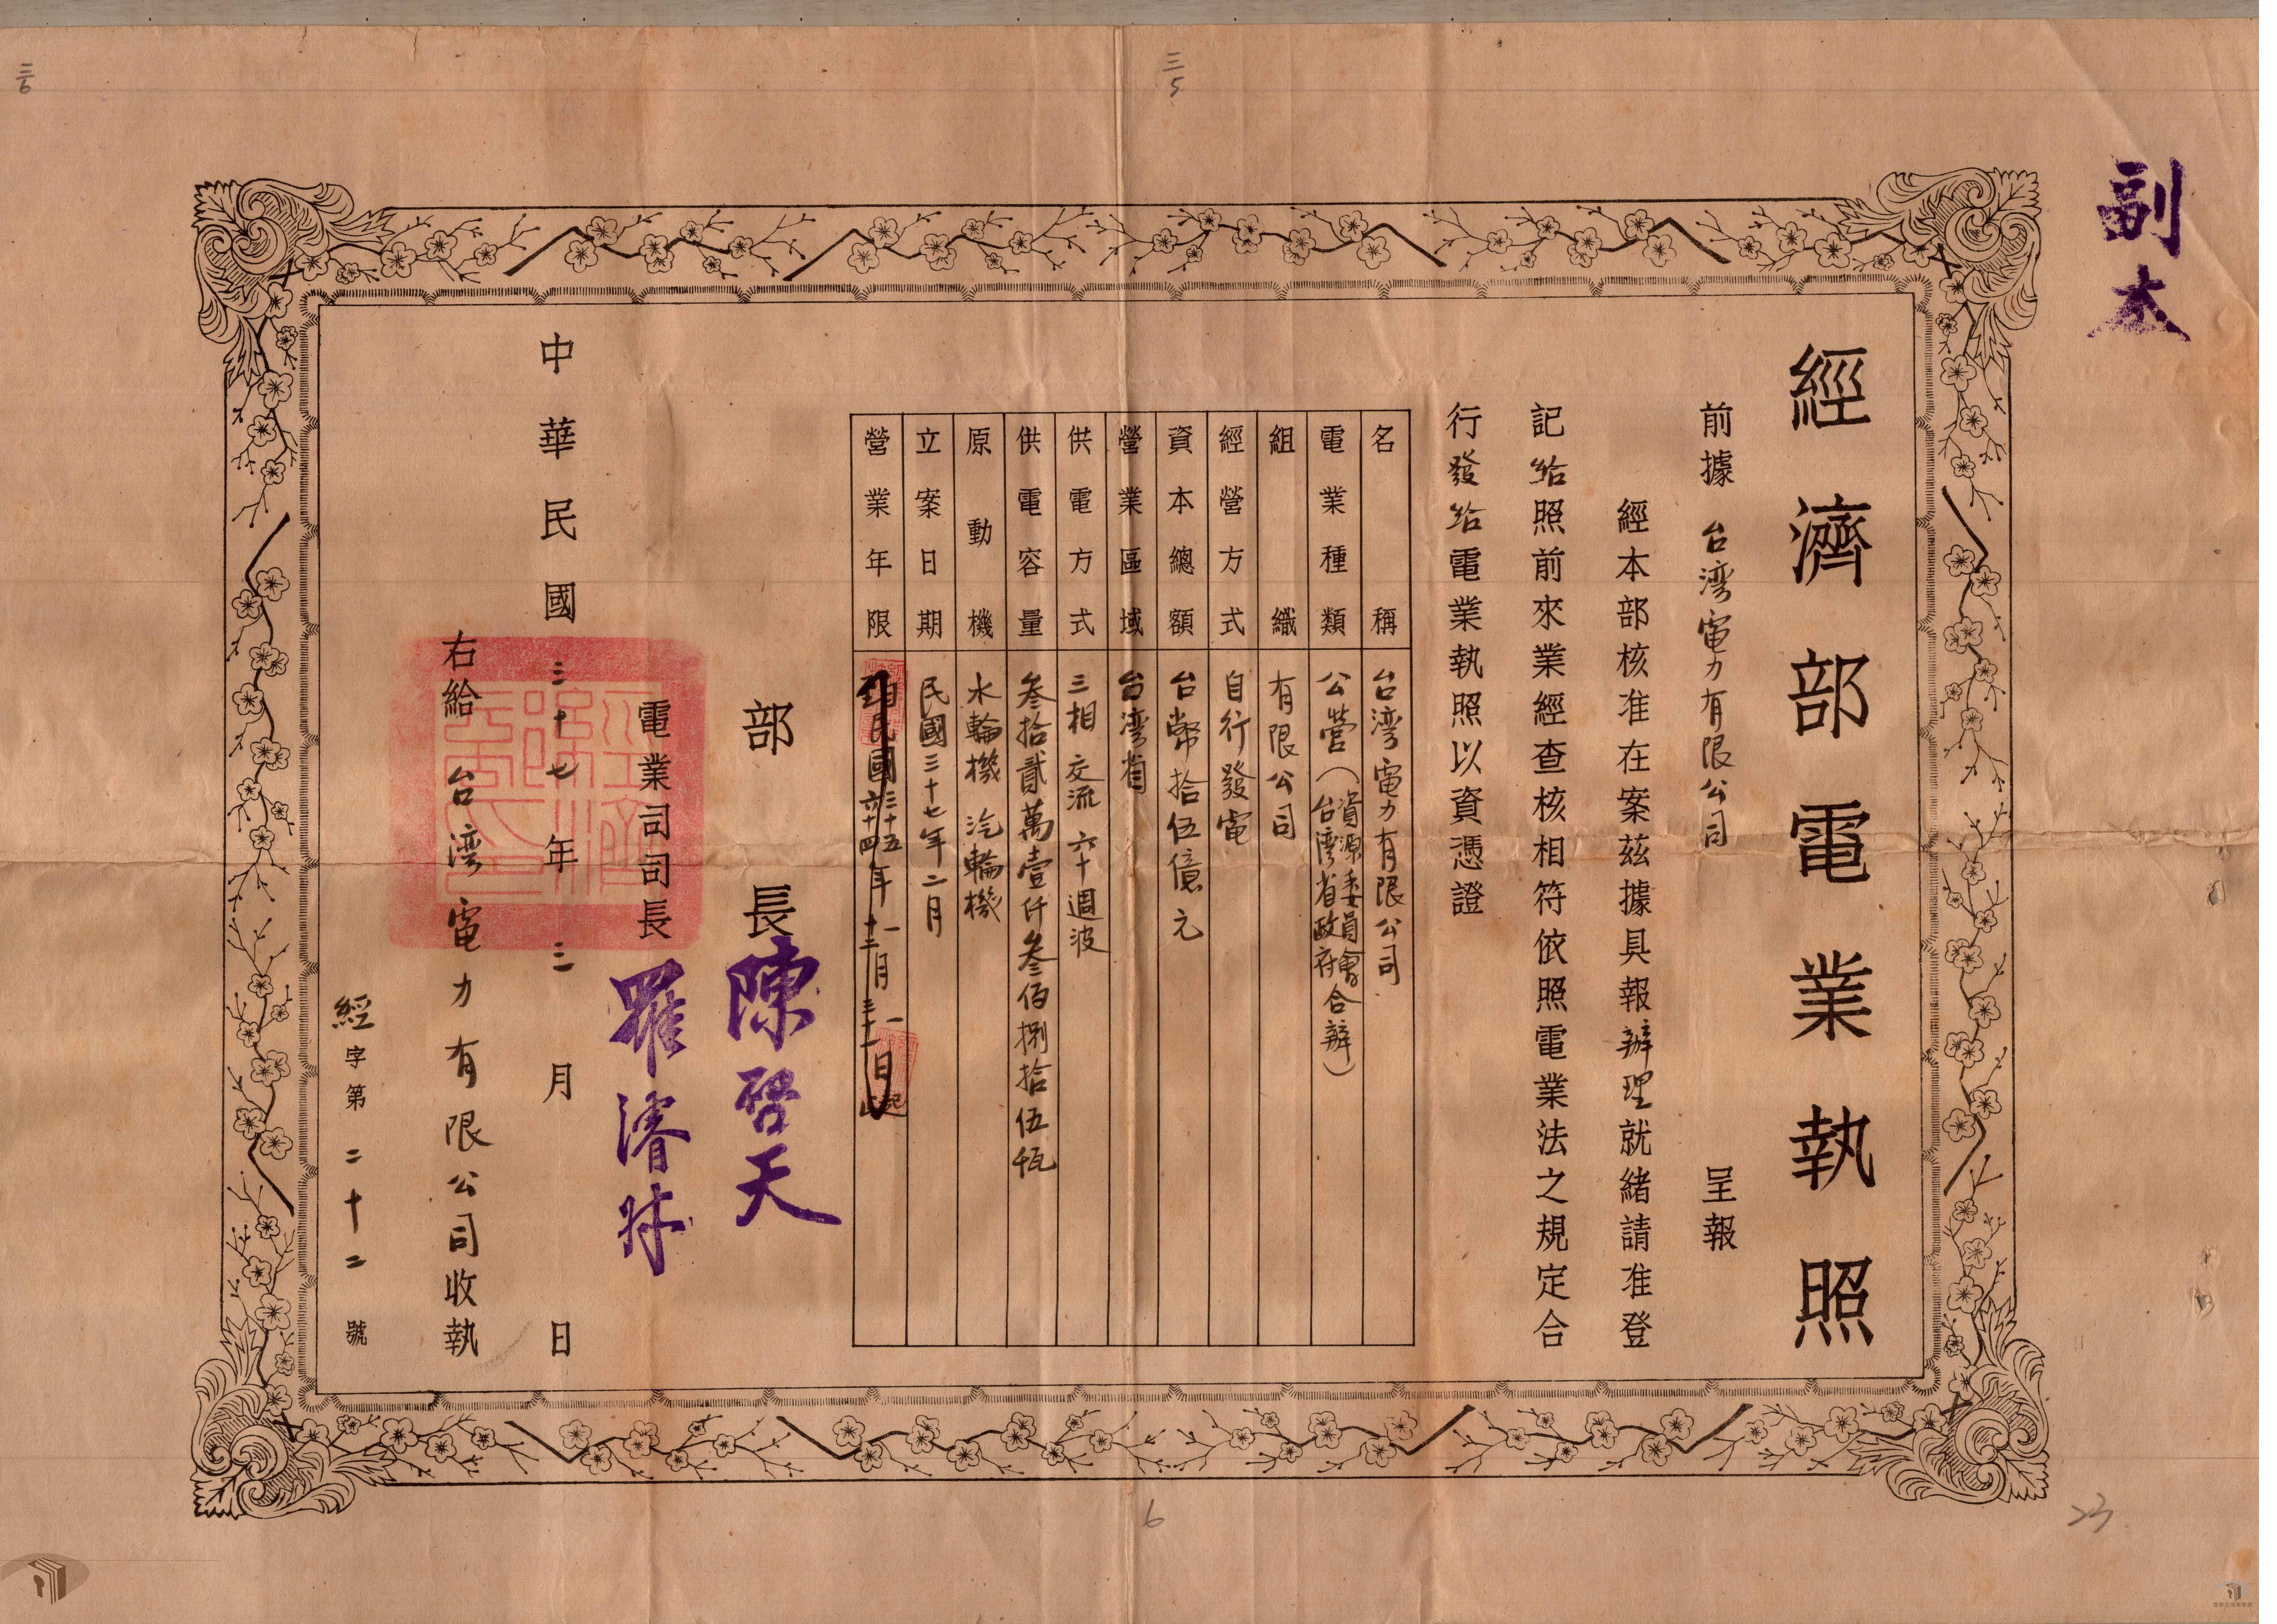 副本
經濟部電業執照
前據 台湾電力有限公司 呈報
經本部核准在案茲據具報辦理就緒請准登
記給照前來業經查核相符依照電業法之規定合
行發給電業執照以資憑證
名稱 台湾電力有限公司
電業種類 公營(資源委員會台湾省政府合辦)
組織 有限公司
經營方式 自行發電
資本總額 台幣拾伍億元
營業區域 台湾省
供電方式 三相交流 六十週波
供電容量 叁拾貳萬壹仟叁佰捌拾伍瓩
原動機 水輪機 汽輪機
立案日期 民國三十七年二月
營業年限 自至民國三十五六十四年一十二月一三十一日起止
部長 陳啓天
電業司司長 羅濬
中華民國三十七年三月 日
右給 台湾電力有限公司收執
經字第二十二號
三5
三6
6
23